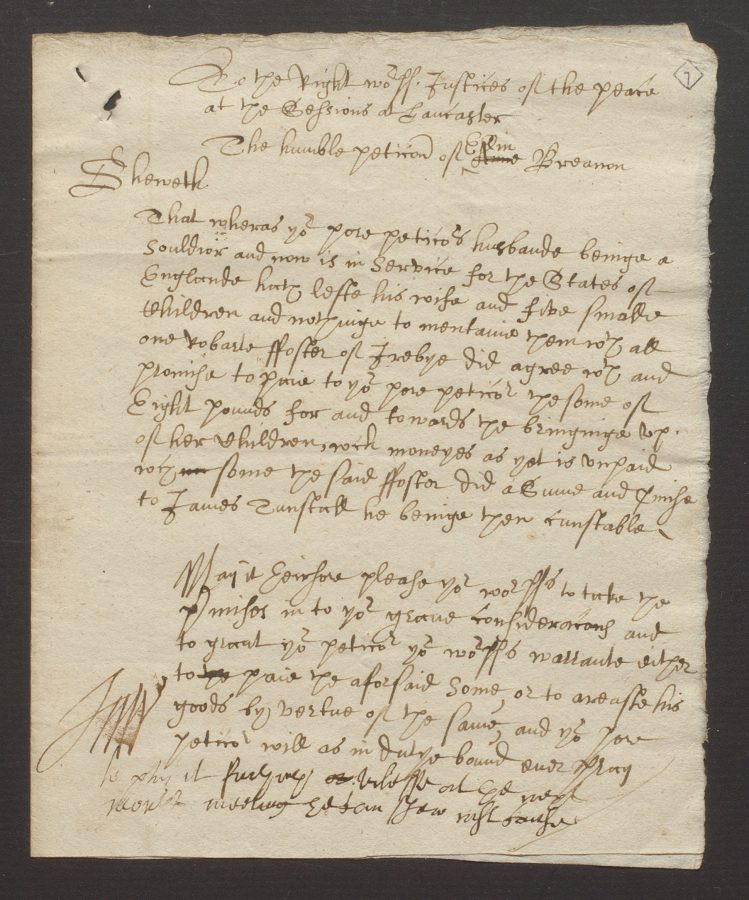 7
To the Right worpp. Justices of the peace
at the Sessions at Lancaster
The humble peticon of Ellin Anne Breanon
Sheweth
That wheras yor pore peticors husbande beinge a
Souldior and now is in Service for the States of
Englande hath lefte his wife and five smale
Children and nothinge to mentaine them wth all
one Robarte ffoster of Irebye did agree wth and
promise to paie to yor pore peticor the some of
Eight pounds for and towards the bringinge vp
of her Children, wch moneyes as yet is vnpaid
wch some the said ffoster did assume and pmise
to James Tunstall he beinge then Cunstable
May it therfore please yor worpps to take the
pmises in to yor grave consideracons and
to graunt yor peticor yor worpps warrante either
to paie the aforsaid some or to areaste his
goods by vertue of the same, and yor pore
peticor will as in dutye bound ever pray
to pay it vnlesse at the next
meeting he can shew just cause